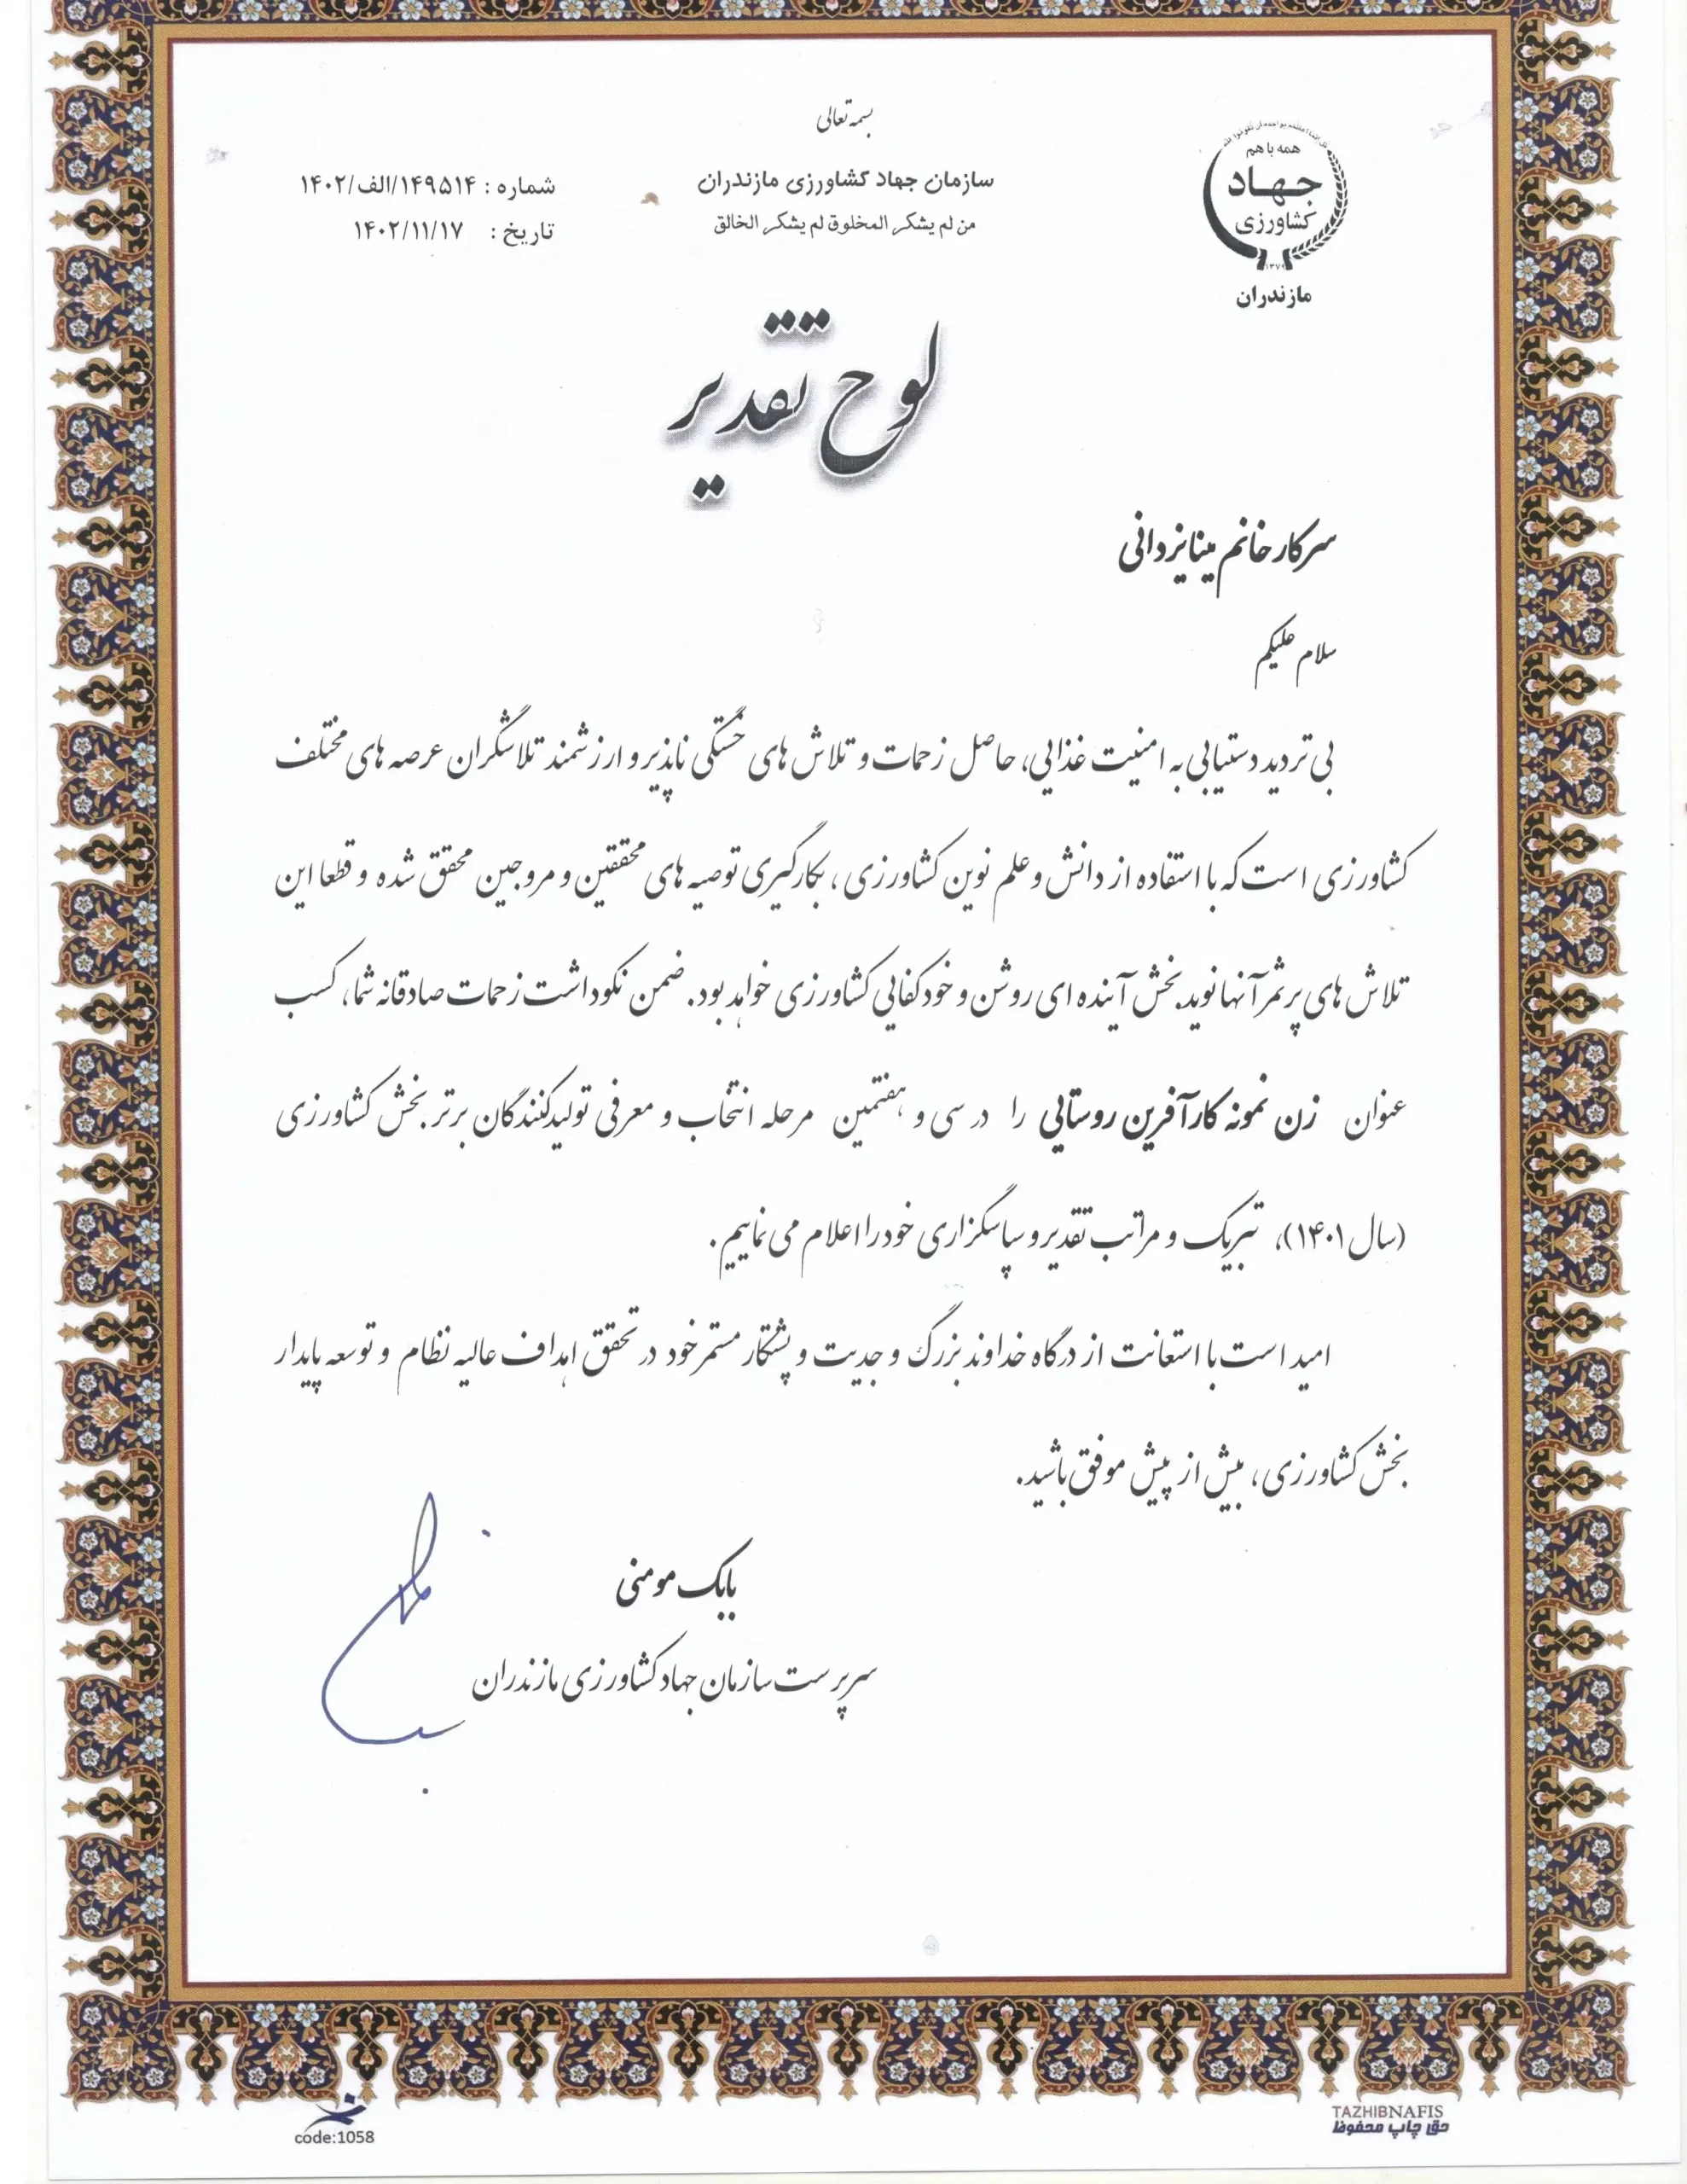 بسمه تعالی
همه با هم
جهاد
کشاورزی
۱۳۷۹
مازندران
سازمان جهاد کشاورزی مازندران
من لم یشکر المخلوق لم یشکر الخالق
شماره : ۱۴۹۵۱۴/الف/۱۴۰۲
تاریخ : ۱۴۰۲/۱۱/۱۷
لوح تقدیر
سرکار خانم مینا یزدانی
سلام علیکم
بی تردید دستیابی به امنیت غذایی، حاصل زحمات و تلاش های خستگی ناپذیر و ارزشمند تلاشگران عرصه های مختلف
کشاورزی است که با استفاده از دانش و علم نوین کشاورزی، بکارگیری توصیه های محققین و مروجین محقق شده و قطعا این
تلاش های پرثمر آنها نوید بخش آینده ای روشن و خودکفایی کشاورزی خواهد بود. ضمن نکوداشت زحمات صادقانه شما، کسب
عنوان زن نمونه کارآفرین روستایی را در سی و هفتمین مرحله انتخاب و معرفی تولیدکنندگان برتر بخش کشاورزی
(سال ۱۴۰۱)، تبریک و مراتب تقدیر و سپاسگزاری خود را اعلام می نماییم.
امید است با استعانت از درگاه خداوند بزرگ و جدیت و پشتکار مستمر خود در تحقق اهداف عالیه نظام و توسعه پایدار
بخش کشاورزی، بیش از پیش موفق باشید.
بابک مومنی
سرپرست سازمان جهاد کشاورزی مازندران
code:1058
TAZHIBNAFIS
حق چاپ محفوظ